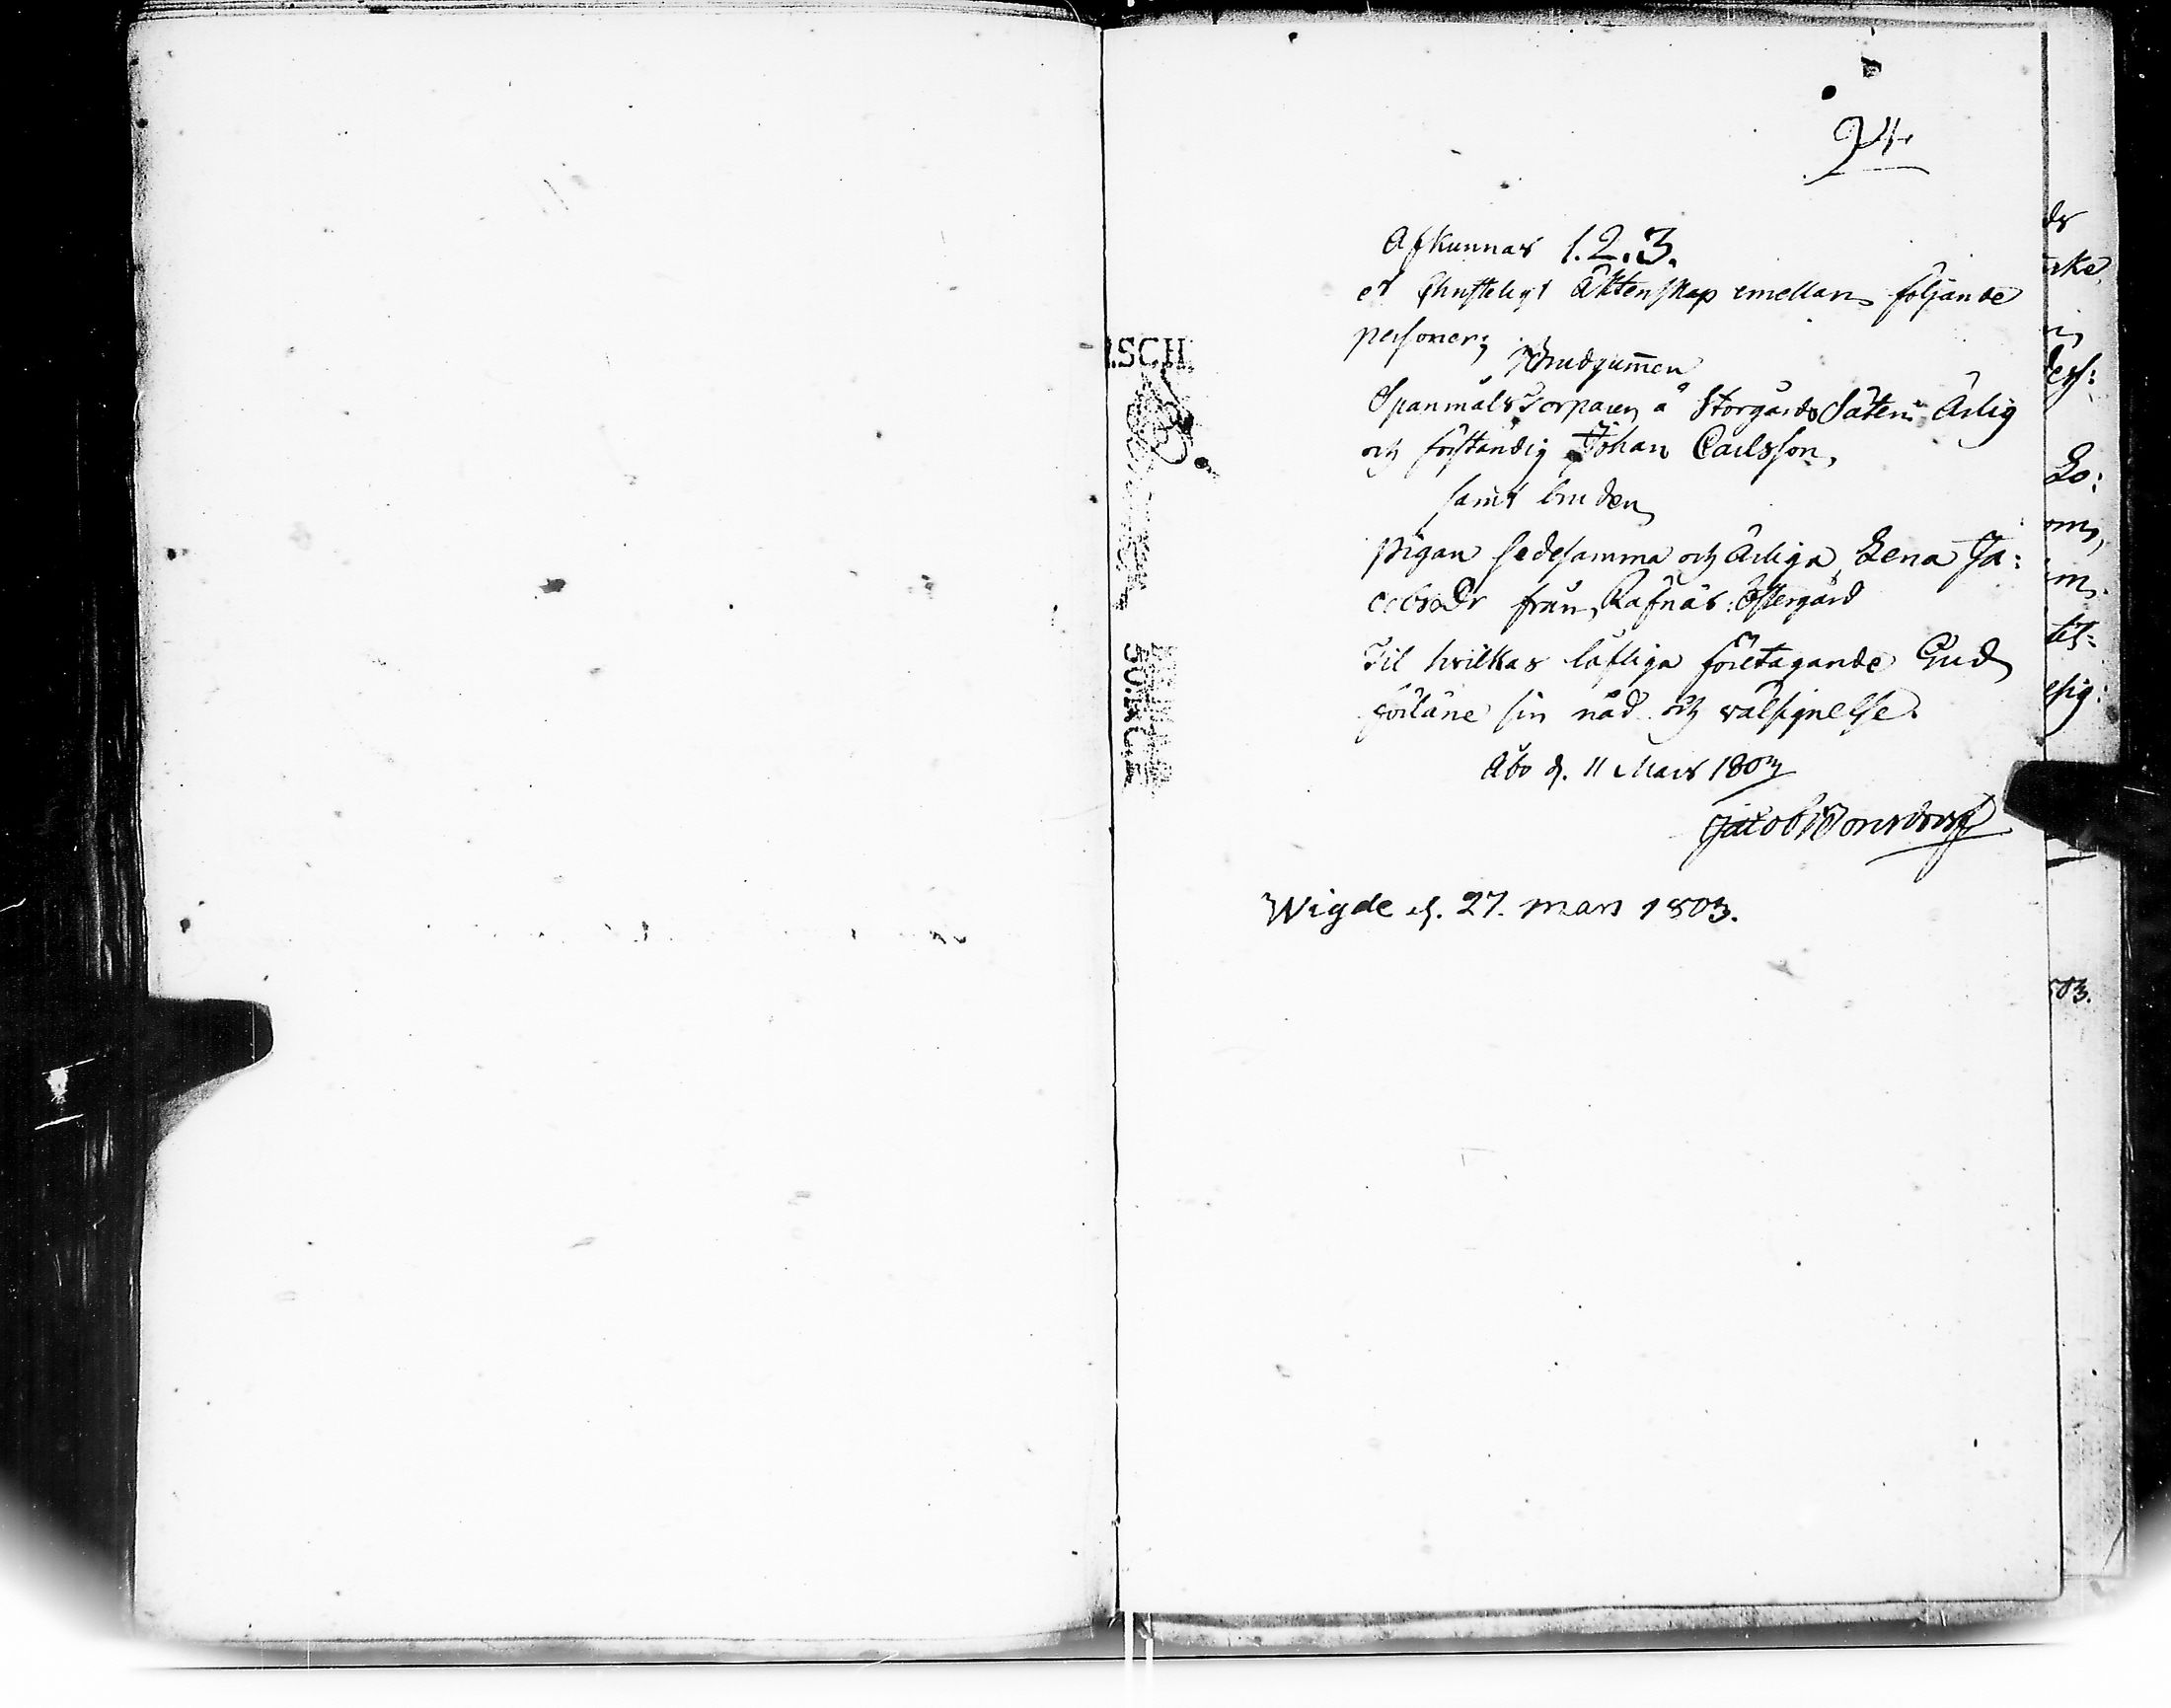 24.
Afkunnas 1.2.3.
et Christeligt Äktenskap emellan följande
personer;
Brudgummen
Spanmåls Torparen å Storgårds Säteri Ärlig
och förståndig Johan Carlsson,
samt bruden
pigan sedesamma och Ärliga Lena Ja:
cobs Dr från Rafnäs: Östergård
Til hvilkas lofliga företagande Gud
förläne sin nåd och välsignelse.
Åbo d. 11 Mars 1803
Jacob Bonsdorff
Wigde d. 27. mars 1803.
.SCH
50.
ds
rske
ers:
Lo:
om,
im
til=
lsig:
503.